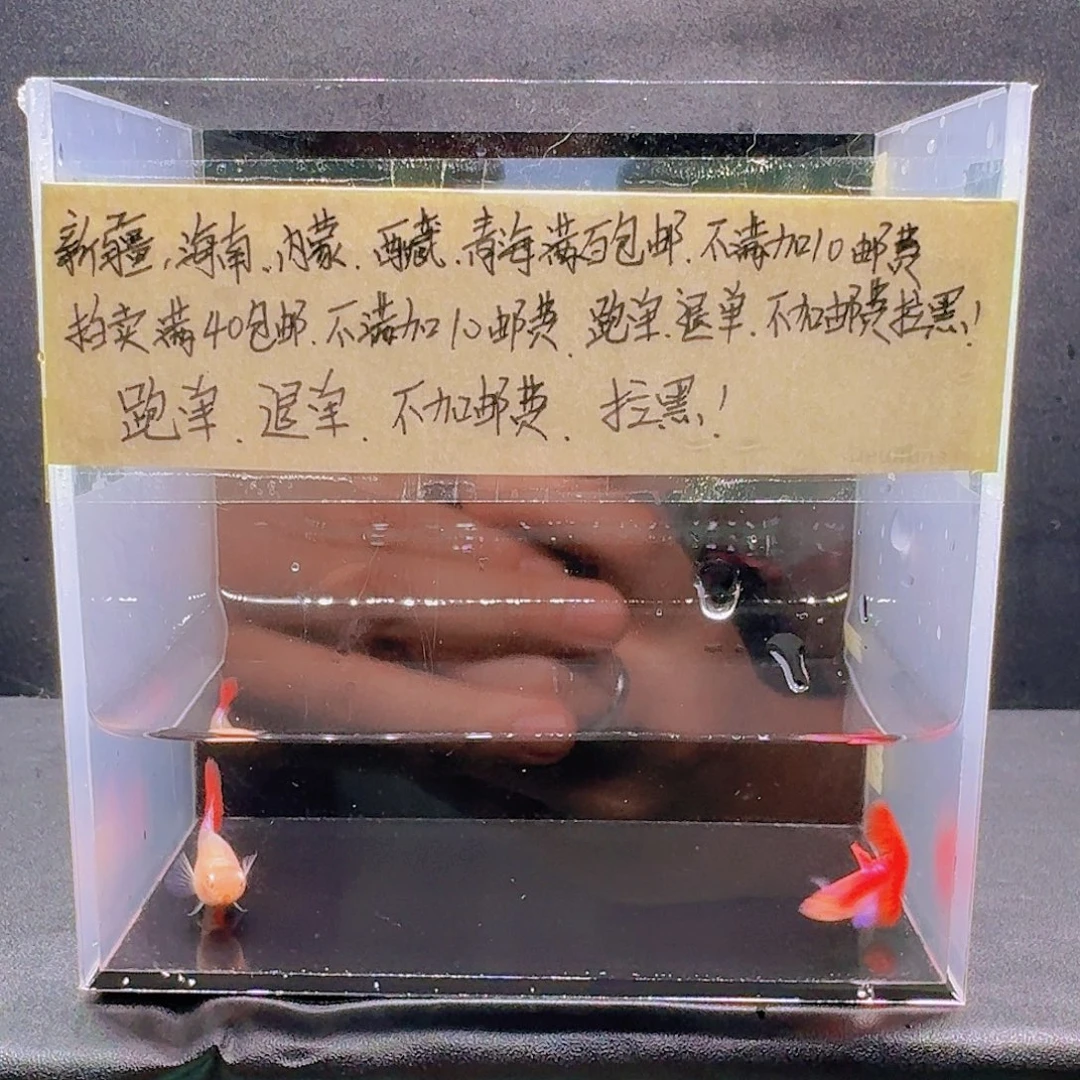 新疆,海南、内蒙、西藏、青海满百包邮.不满加10邮费
拍卖满40包邮.不满加10邮费.跑单.退单.不加邮费拉黑!
跑单.退单.不加邮费.拉黑!